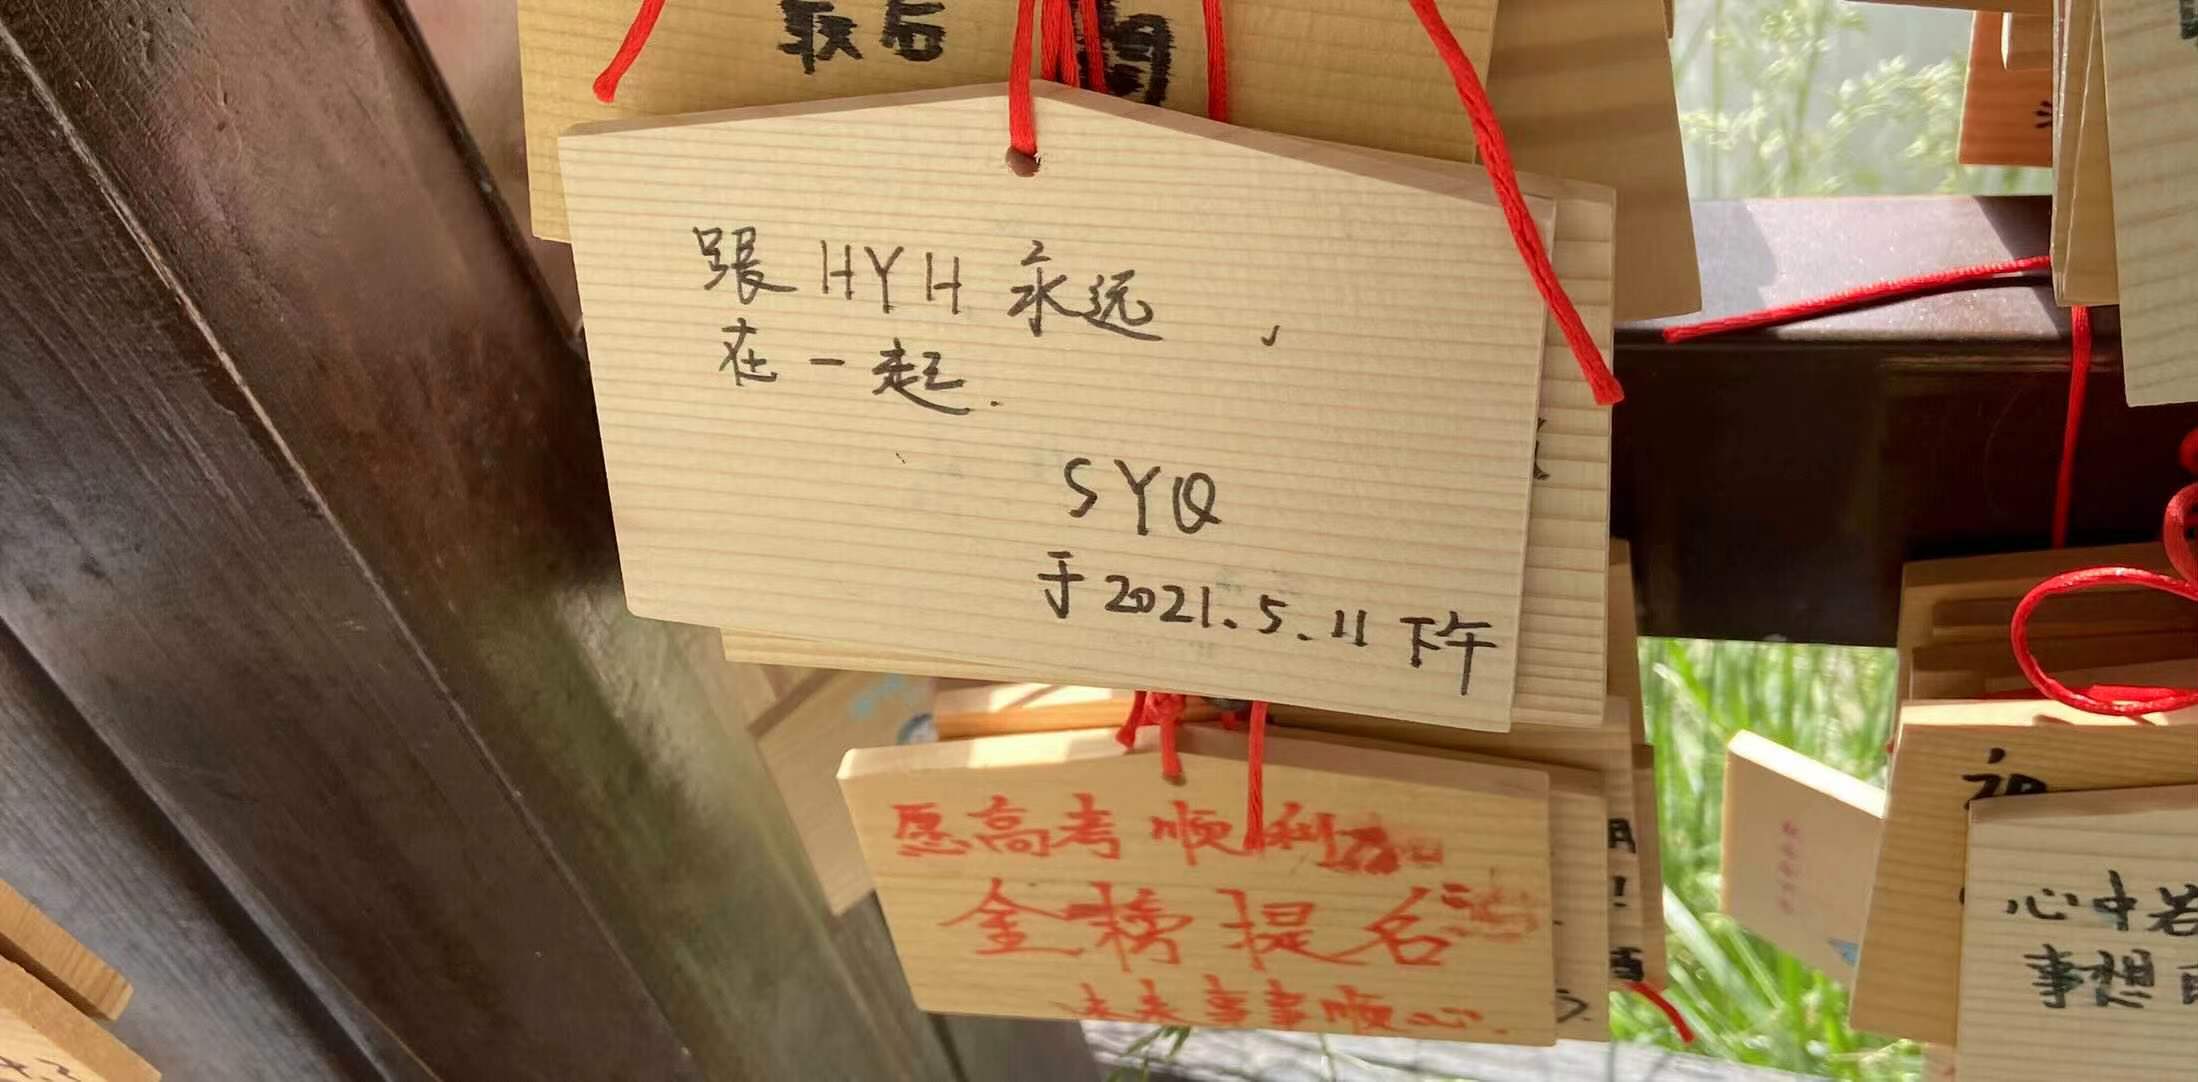 跟HYH永远
在一起.
SYQ
于2021.5.11下午
愿高考顺利
金榜提名
未来事事顺心.
心中若
事想